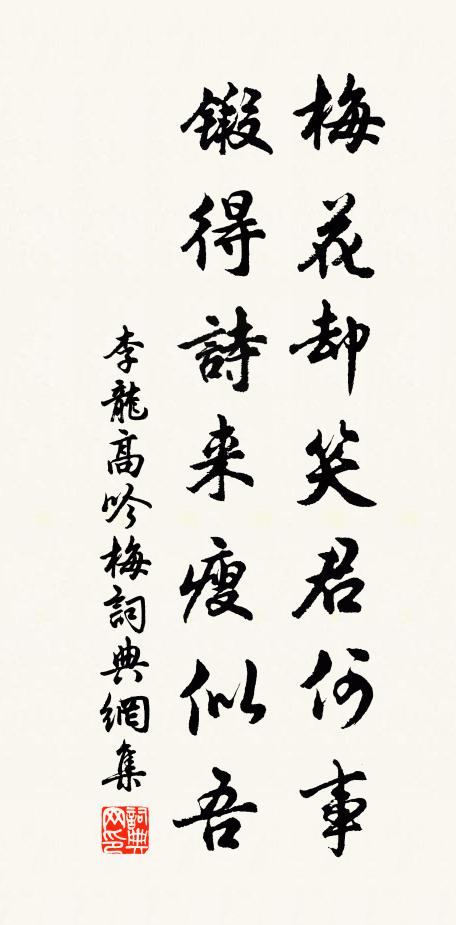 梅花却笑君何事
鍛得詩来瘦似吾
李龍高吟梅詞典網集
詞典網印